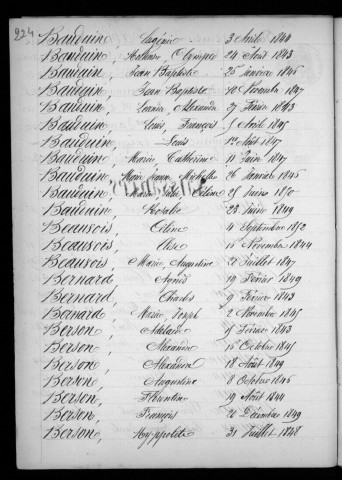 224
Bauduin, Eugénie 3 Août 1844
Bauduin, Olympe 24 Août 1843
Bauduin, Jean Baptiste 25 Janvier 1846
Bauduin, Jean Baptiste 10 Novembre 1847
Bauduin, Alexandre 27 Février 1843
Bauduin, Louis François 5 Avril 1845
Bauduin, Louis 1er Août 1847
Bauduin, Marie Catherine 11 Juin 1847
Bauduin, Marie Jeanne Michelle 26 Janvier 1846
Bauduin, Marie Céline 25 Juin 1850
Bauduin, Rosalie 23 Juin 1849
Beauvois, Céline 4 Septembre 1852
Beauvois, Elise 15 Novembre 1844
Beauvois, Marie Augustine 21 Juillet 1847
Bernard, 19 Février 1849
Bernard, Charles 9 Février 1843
Bernard, Marie Joseph 2 Novembre 1845
Berson, Adélaïde 15 Février 1843
Berson, Alexandre 15 Octobre 1845
Berson, Alexandre 18 Août 1849
Berson, Augustine 8 Octobre 1846
Berson, Florentine 19 Août 1844
Berson, François 26 Décembre 1849
Berson, Hyppolite 31 Juillet 1848